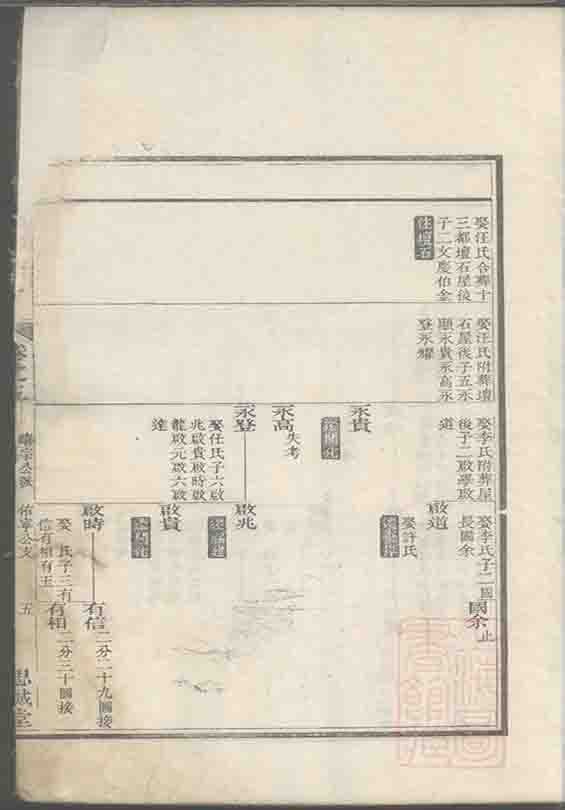 娶汪氏合葬十
三都壇石屋後
子二文慶伯金
住壇石
娶汪氏附葬壇
石屋後子五永
顯永貴永高永
登永耀
娶李氏附葬屋
後子二啟學啟
道
永貴
永高
失考
永登
娶任氏子六啟
兆啟貴啟時啟
龍啟元啟六啟
達
娶李氏子二國
長國余
國余
止
啟道
娶許氏
啟兆
啟貴
啟時
娶 氏子三有
信有相有玉
有信
二分二十九圖接
有相
二分三十圖接
五
思誠堂